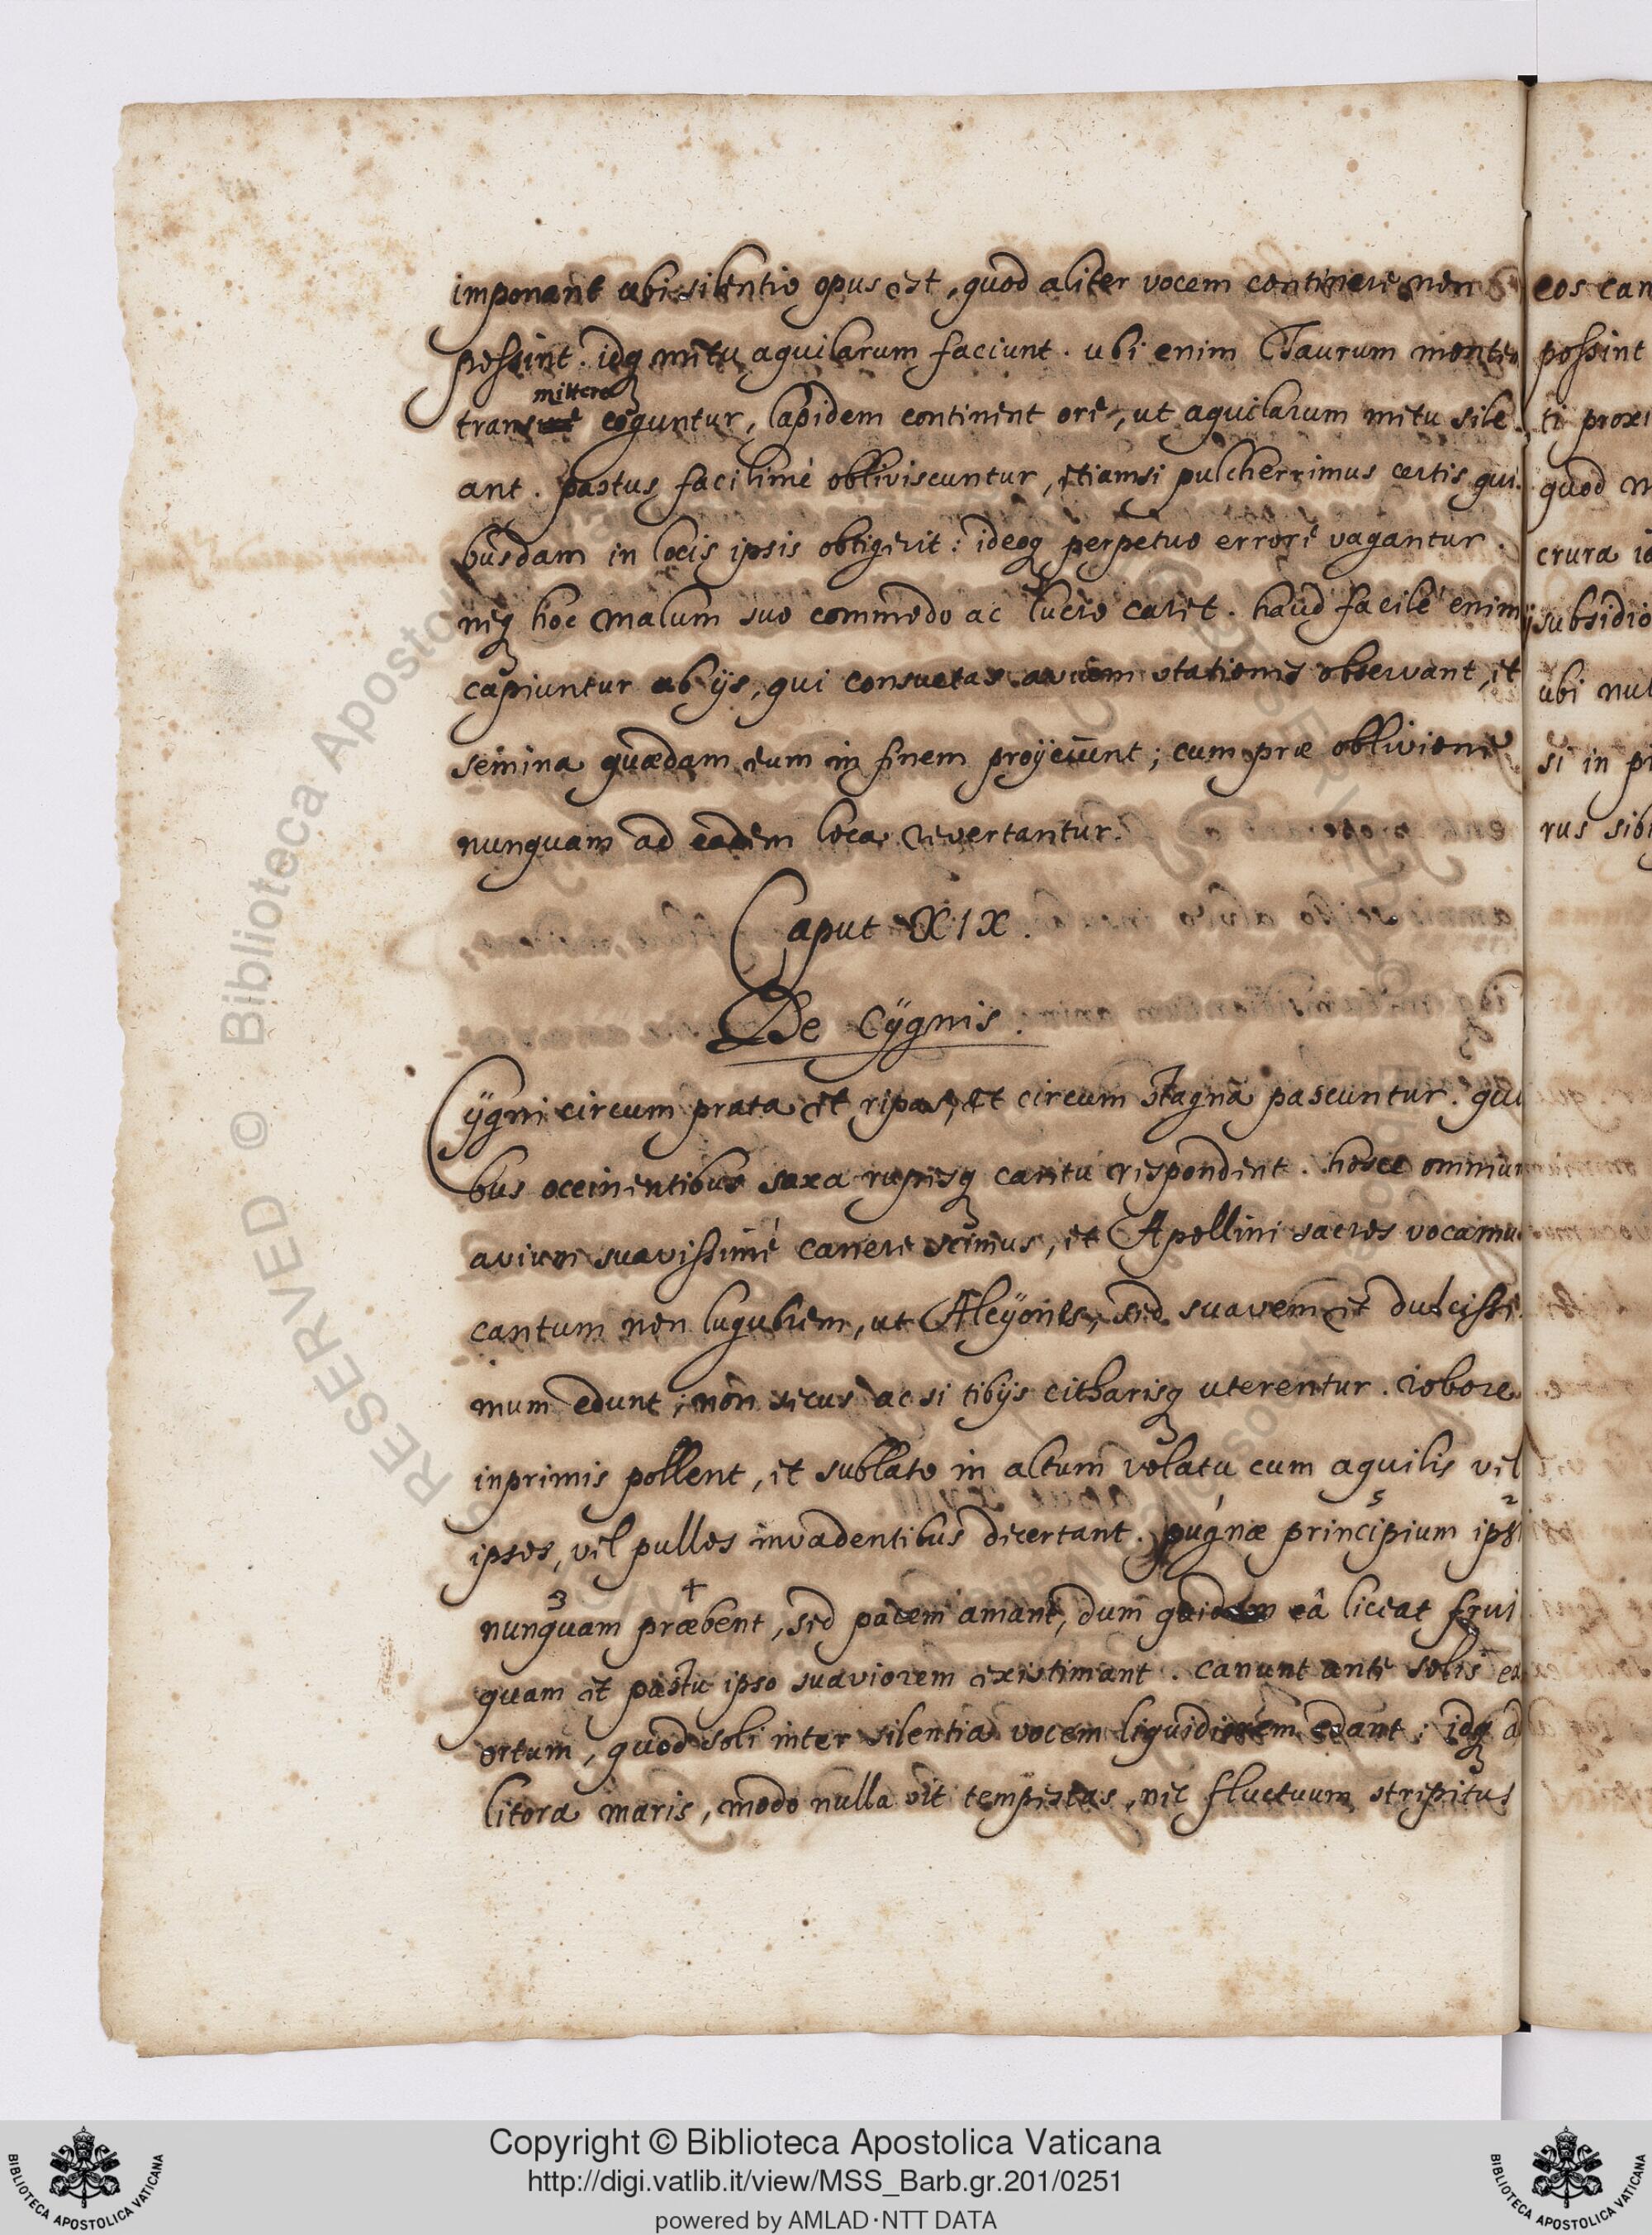 imponant ubi silentio opus est, quod aliter vocem continere non
possint. idq metu aquilarum faciunt. ubi enim Taurum montem
mittere
trans coguntur, lapidem continent ore, ut aquilarum metu sile
ant. pastus facilimè obliviscuntur, etiamsi pulcherrimus certis qui-
busdam in locis ipsis obtigerit: ideoq perpetuo errore vagantur.
neq hoc malum suo commodo ac lucro caret. haud facile enim
capiuntur ab ijs, qui consuetas avium stationes observant, et
semina quædam eum in finem proijciunt; cum præ oblivione
nunquam ad eadem loca revertantur.
Caput XIX.
De Cÿgnis.
Cÿgni circum prata et ripas, et circum stagna pascuntur. qui
bus occinentibus saxa rupesq cantu respondent. hosce omnium
avium suavissimè canere scimus, et Apollini sacros vocamus
cantum non lugubrem, ut Alcÿones, sed suavem et dulcissi-
mum edunt; non secus ac si tibijs citharisq uterentur. robore
inprimis pollent, et sublato in altum volatu cum aquilis vel
1 5 2
ipsos, vel pullos invadentibus decertant. pugnæ principium ipsi
3 4
nunquam præbent, sed pacem amant, dum eâ liceat frui
quam et pastu ipso suaviorem existimant. canunt ante solis ex
ortum, quod soli inter silentia vocem liquidiorem edant: idq ad
litora maris, modo nulla sit tempestas, nec fluctuum strepitus
eos can
possint
ti proxi
quod m
crura
subsidio
ubi nul
si in pr
rus sibi
© Biblioteca Apostolica Vaticana
RESERVED
Copyright © Biblioteca Apostolica Vaticana
http://digi.vatlib.it/view/MSS_Barb.gr.201/0251
powered by AMLAD·NTT DATA
BIBLIOTECA APOSTOLICA VATICANA
BIBLIOTECA APOSTOLICA VATICANA